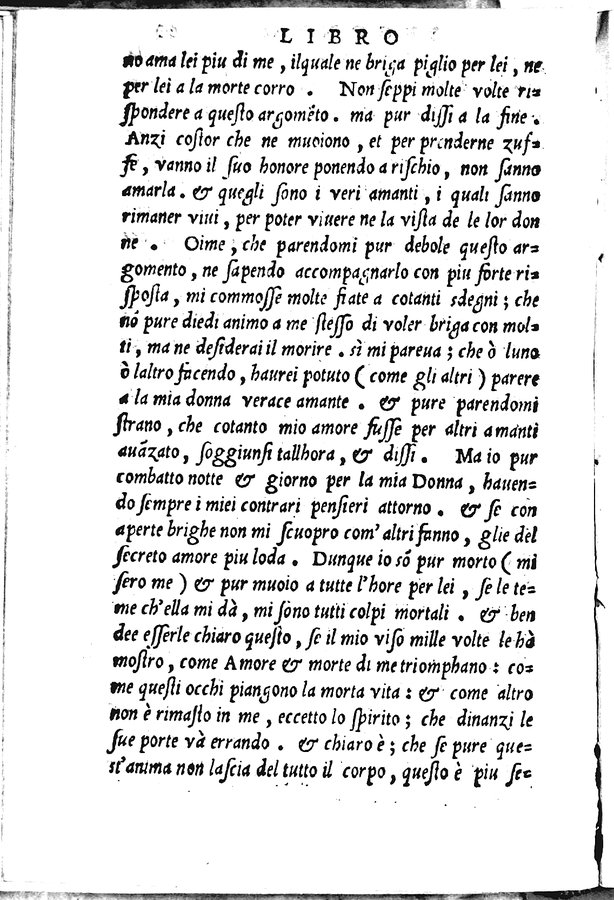 LIBRO
no ama lei piu di me, ilquale ne briga piglio per lei, ne
per lei a la morte corro. Non ſeppi molte volte ri=
ſpondere a queſto argomẽto. ma pur diſſi a la fine.
Anzi coſtor che ne muoiono, et per prenderne zuf=
fe, vanno il ſuo honore ponendo a riſchio, non ſanno
amarla. & quegli ſono i veri amanti, i quali ſanno
rimaner viui, per poter viuere ne la viſta de le lor don
ne. Oime, che parendomi pur debole queſto ar=
gomento, ne ſapendo accompagnarlo con piu forte ri=
ſpoſta, mi commoſſe molte fiate a cotanti sdegni; che
nõ pure diedi animo a me ſteſſo di voler briga con mol=
ti, ma ne deſiderai il morire. sì mi pareua; che ò luno
ò laltro facendo, haurei potuto (come gli altri) parere
a la mia donna verace amante. & pure parendomi
ſtrano, che cotanto mio amore fuſſe per altri amanti
auãzato, ſoggiunſi tallhora, & diſſi. Ma io pur
combatto notte & giorno per la mia Donna, hauen=
do ſempre i miei contrari penſieri attorno. & ſe con
aperte brighe non mi ſcuopro com' altri fanno, glie del
ſecreto amore piu loda. Dunque io sõ pur morto (mi
ſero me) & pur muoio a tutte l'hore per lei, ſe le te=
me ch'ella mi dà, mi ſono tutti colpi mortali. & ben
dee eſſerle chiaro queſto, ſe il mio viſo mille volte le hà
moſtro, come Amore & morte di me triomphano: co=
me queſti occhi piangono la morta vita: & come altro
non è rimaſto in me, eccetto lo ſpirito; che dinanzi le
ſue porte và errando. & chiaro è; che ſe pure que=
st'anima non laſcia del tutto il corpo, queſto è piu ſe=